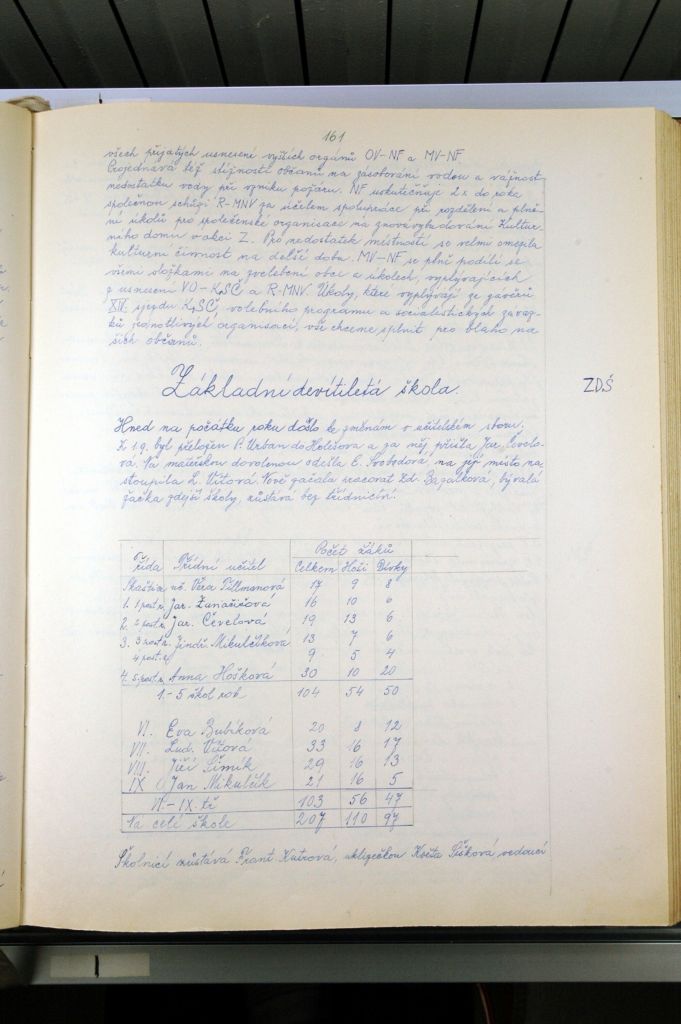 161
všech přijatých usnesení vyšších orgánů OV-NF a MV-NF
Projednává též stížnosti občanů na zásobování vodou a vážnost
nedostatku vody při vzniku požáru. NF uskutečňuje 2x do roka
společnou schůzi R-MNV za účelem spolupráce při rozdělení a plně-
ní úkolů pro společenské organisace na znovuvybudování Kultur
ního domu v akci Z. Pro nedostatek místností se velmi omezila
kulturní činnost na delší dobu. MV-NF se plně podílí se
všemi složkami na zvelebení obce a úkolech, vyplývajících
z usnesení VO-KSČ a R-MNV. Úkoly, které vyplývají ze závěrů
XIV. sjezdu KSČ, volebního programu a socialistických závaz-
ků jednotlivých organisací, vše chceme splnit pro blaho na
šich občanů.
Základní devítiletá škola. ZDŠ
Hned na počátku roku došlo ke změnám v učitelském sboru.
Z 1.9. byl přeložen P. Urban do Holešova a za něj přišla Jar. Čevelo-
vá. Na mateřskou dovolenou odešla E. Svobodová, na její místo na
stoupila L. Vítová. Nově začala pracovat Zd. Zagalková, bývalá
žačka zdejší školy, zůstává bez třídnictví.
Počet žáků
Třída Třídní učitel Celkem Hoši Dívky
Věra Tillmanová 17 9 8
1. 1 post.r. Jar. 16 10 6
2. 2 post.r. Jar. Čevelová 19 13 6
3. 3 post.r. Jindř. Mikulčíková 13 7 6
4 post.r. 9 5 4
4. 5 post.r. Anna Hošková 30 10 20
1.-5 škol rok 104 54 50
VI. Eva Zubíková 20 8 12
VII. Lud. Vítová 33 16 17
VIII. Jiří Šimík 29 16 13
IX Jan Mikulčík 21 16 5
VI.-IX. tř 103 56 47
Na celé škole 207 110 97
Školnicí zůstává Frant. Kutrová, uklizečkou Květa Šišková, vedoucí